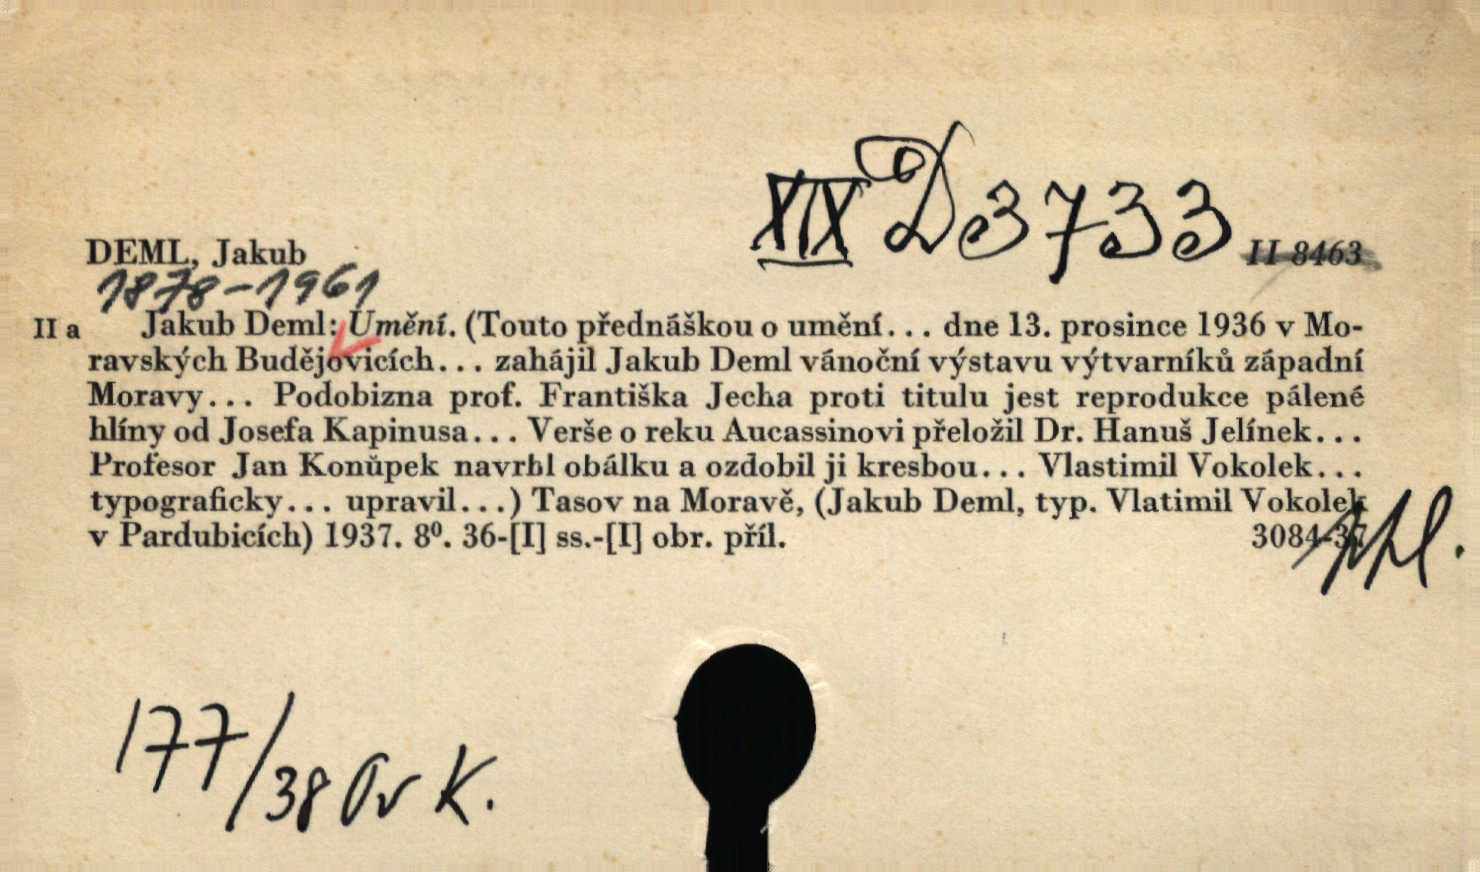 XIX D 3733
DEML, Jakub
II 8463
1878-1961
II a Jakub Deml: Umění. (Touto přednáškou o umění... dne 13. prosince 1936 v Mo-
ravských Budějovicích... zahájil Jakub Deml vánoční výstavu výtvarníků západní
Moravy... Podobizna prof. Františka Jecha proti titulu jest reprodukce pálené
hlíny od Josefa Kapinusa... Verše o reku Aucassinovi přeložil Dr. Hanuš Jelínek...
Profesor Jan Konůpek navrhl obálku a ozdobil ji kresbou... Vlastimil Vokolek...
typograficky... upravil...) Tasov na Moravě, (Jakub Deml, typ. Vlatimil Vokolek
v Pardubicích) 1937. 8⁰. 36-[I] ss.-[I] obr. příl.
3084-37
177/38 Ov K.